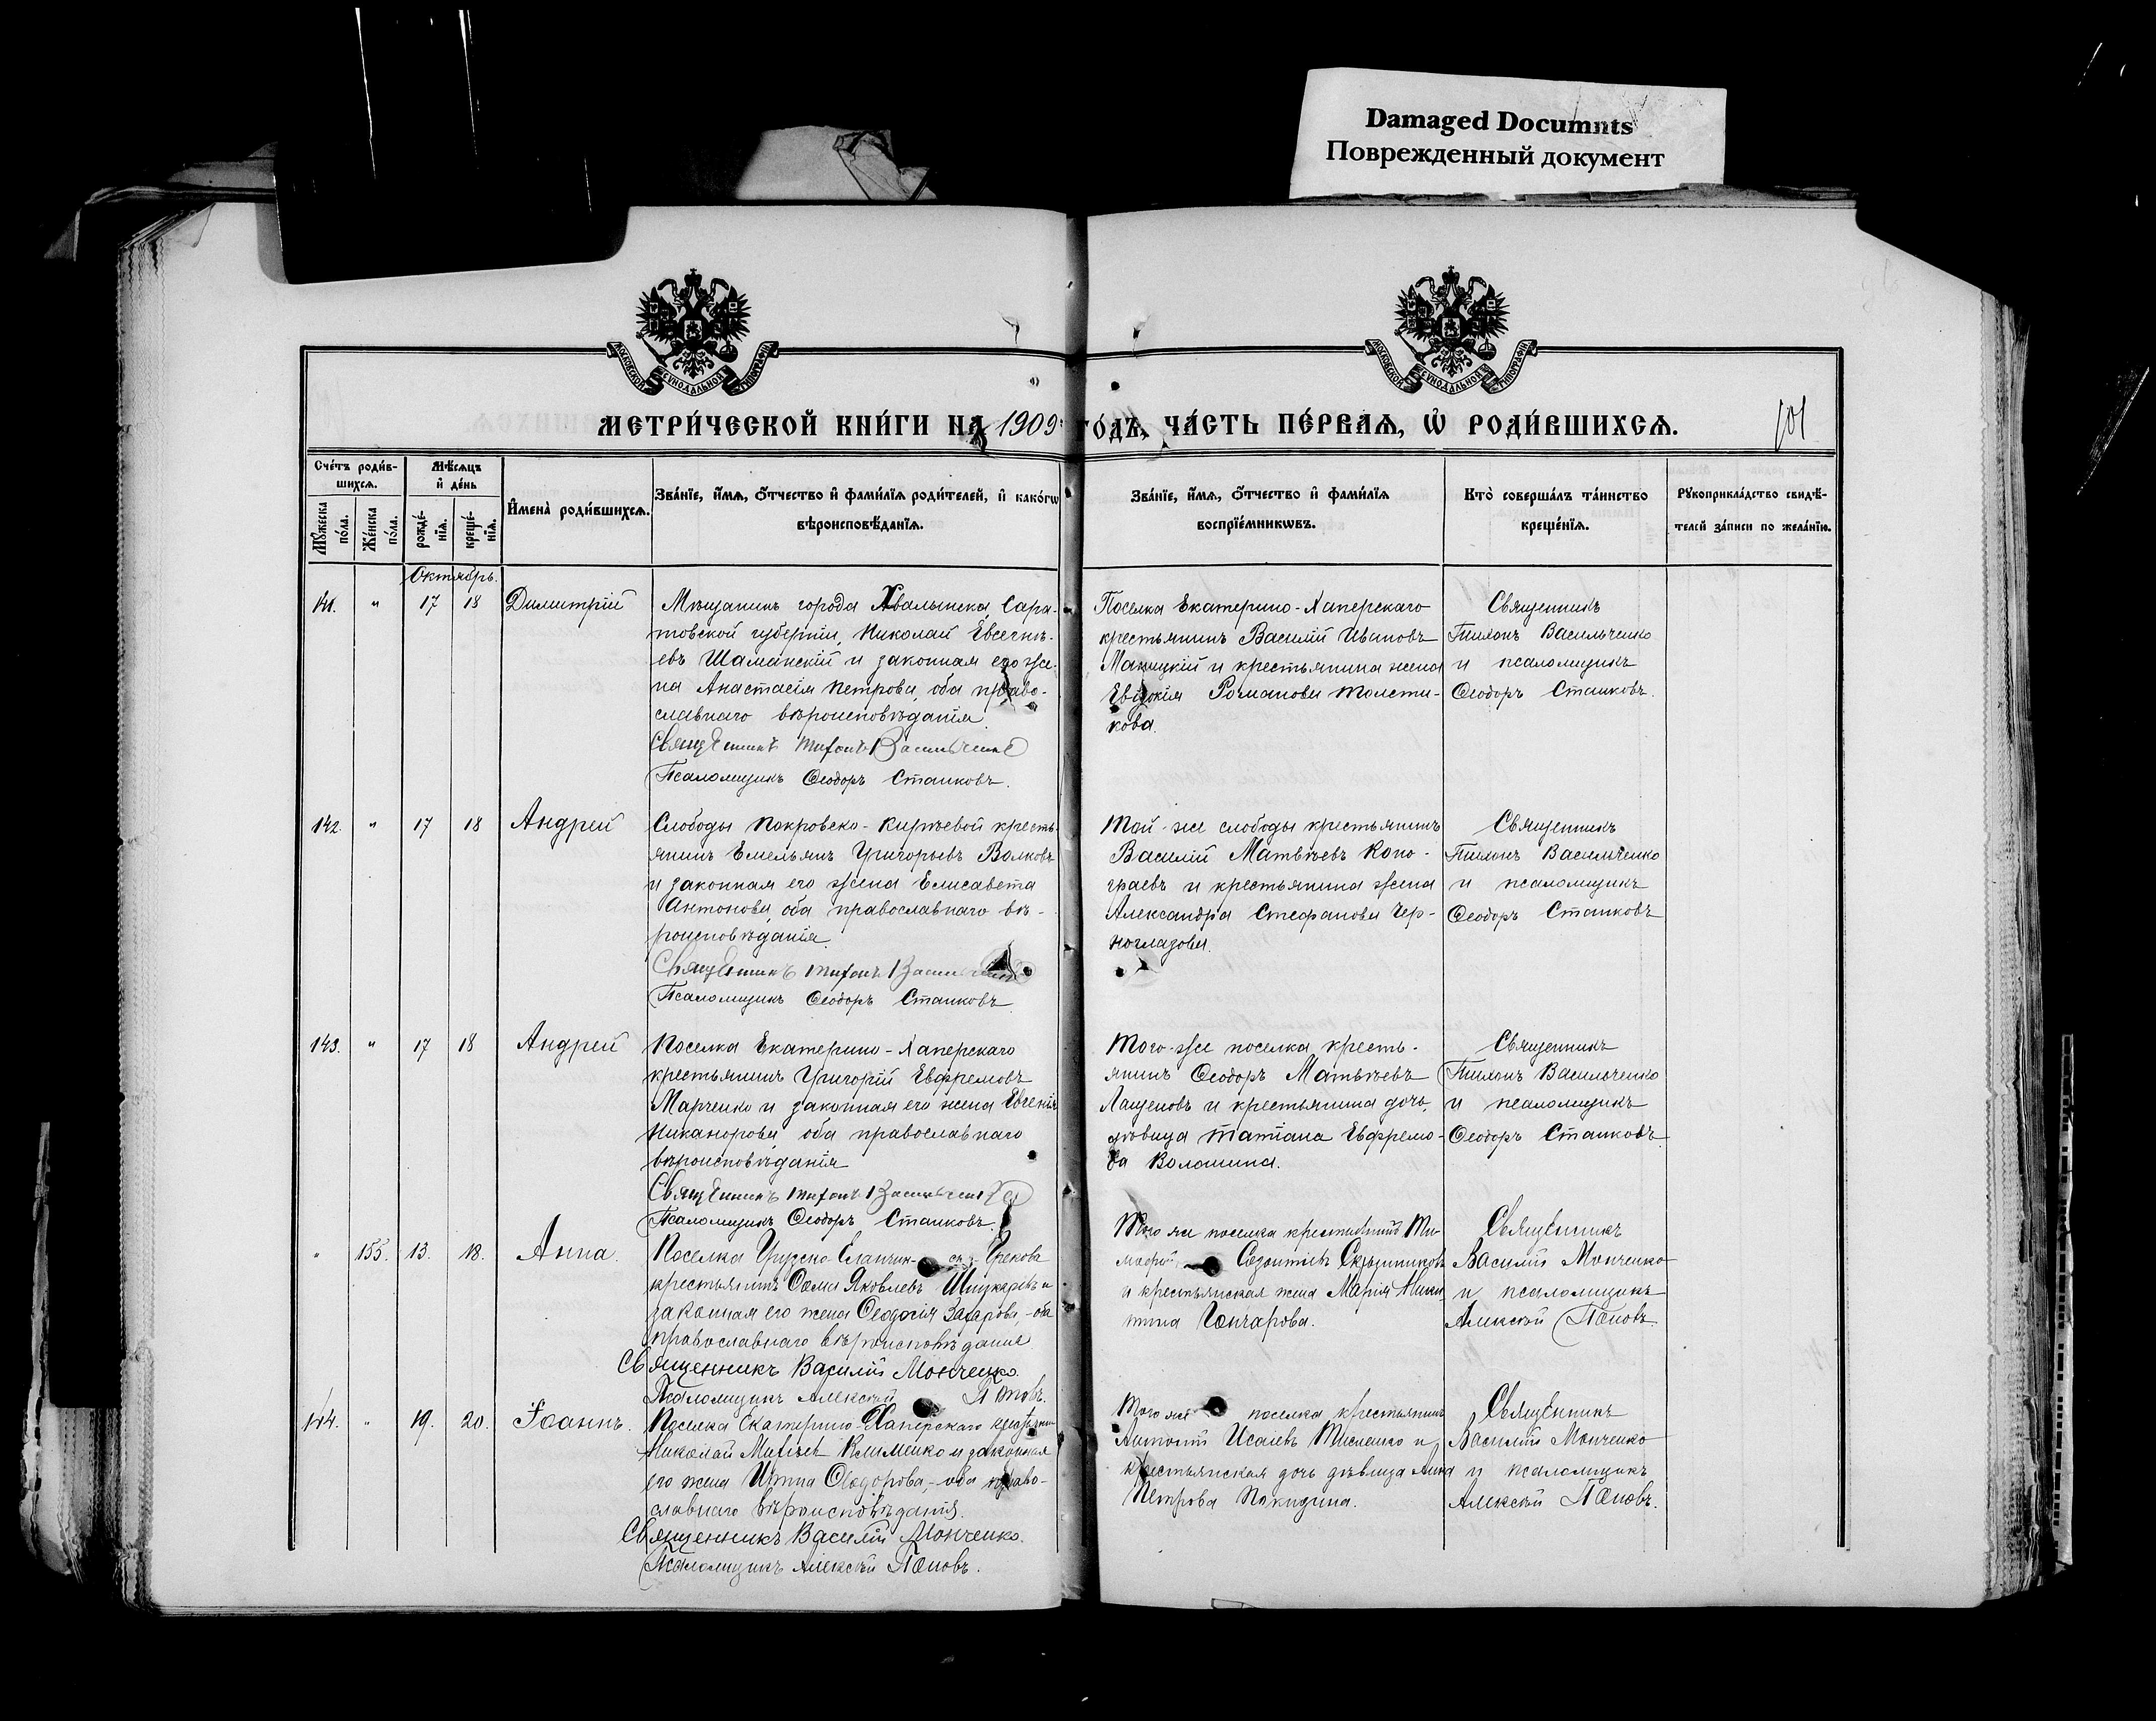 Damaged Documnts
Поврежденный документ
МОСКОВСКОЙ СѴНОДАЛЬНОЙ ТИПОГРАФІИ
МОСКОВСКОЙ СѴНОДАЛЬНОЙ ТИПОГРАФІИ
МЕТРИ́ЧЕСКОЙ КНИ́ГИ НА 1909 ГО́ДЪ, ЧА́СТЬ ПЕ́РВАѦ, Ѡ҆ РОДИ́ВШИХСѦ.
101
Сче́тъ роди́в-
шихсѧ.
Мѣ́сѧцъ
и҆ де́нь
И҆мена̀ роди́вшихсѧ.
Зва́нїе, и҆́мѧ, ѻ҆́тчество и҆ фами́лїѧ роди́телей, и҆ како́гѡ
вѣроисповѣ́данїѧ.
Зва́нїе, и҆́мѧ, ѻ҆́тчество и҆ фами́лїѧ
воспрїе́мникѡвъ.
Кто̀ соверша́лъ та́инство
креще́нїѧ.
Рꙋкоприкла́дство свидѣ́-
телей за́писи по жела́нїю.
Мꙋ́жеска
по́ла.
Же́нска
по́ла.
рожде́-
нїѧ.
креще́-
нїѧ.
Октябрь.
141. " 17 18 Димитрій
Мѣщанинъ города Хвалынска, Сара-
товской губерніи, Николай Евсегнѣ-
евъ Шаманскій и законная его же-
на Анастасія Петрова, оба право-
славнаго вѣроисповѣданія.
Священникъ Тихонъ Васильченко
Псаломщикъ Ѳеодоръ Станковъ.
Поселка Екатерино-Хаперскаго
крестьянинъ Василій Ивановъ
Маницкій и крестьянина жена
Евдокія Романова Толсти-
кова.
Священникъ
Тихонъ Васильченко
и псаломщикъ
Ѳеодоръ Станковъ.
142. " 17 18 Андрей
Слободы Покровско-Кирѣевой кресть-
янинъ Емельянъ Григорьевъ Волковъ
и законная его жена Елисавета
Антонова, оба православнаго вѣ-
роисповѣданія.
Священникъ Тихонъ Васильченко
Псаломщикъ Ѳеодоръ Станковъ
Той-же слободы крестьянинъ
Василій Матвѣевъ Коно-
граевъ и крестьянина жена
Александра Стефанова Чер-
ноглазова.
Священникъ
Тихонъ Васильченко
и псаломщикъ
Ѳеодоръ Станковъ
143. " 17 18 Андрей
Поселка Екатерино-Хаперскаго
крестьянинъ Григорій Евфремовъ
Марченко и законная его жена Евгенія
Никанорова, оба православнаго
вѣроисповѣданія
Священникъ Тихонъ Васильченко
Псаломщикъ Ѳеодоръ Станковъ.
Того-же поселка кресть-
янинъ Ѳеодоръ Матвѣевъ
Лащеновъ и крестьянина дочь,
дѣвица Татіана Евфремо-
ва Волошина.
Священникъ
Тихонъ Васильченко
и псаломщикъ
Ѳеодоръ Станковъ
" 155. 13. 18. Анна.
Поселка Грузско-Еланчик- Грекова
крестьянинъ Ѳома Яковлевъ и
законная его жена Ѳеодосія Захарова, - оба
православнаго вѣроисповѣданія
Священникъ Василій Мончен­ко.
Псаломщикъ Алексѣй Поповъ.
Того же поселка крестьянинъ Ти-
мофей Созонтіевъ Скрынниковъ
и крестьянская жена Марія Ники-
тина Гончарова.
Священникъ
Василій Монченко
и псаломщикъ
Алексѣй Поповъ.
144. " 19. 20. Іоаннъ.
Поселка Екатерино-Хаперскаго
Николай Клименко и законная
его жена Ирина Ѳеодорова, - оба право-
славнаго вѣроисповѣданія.
Священникъ Василій Монченко.
Псаломщикъ Алексѣй Поповъ.
Того же поселка крестьянинъ
Антоній Исаіевъ и
крестьянская дочь дѣвица Анна
Петрова
Священникъ
Василій Монченко
и псаломщикъ
Алексѣй Поповъ.